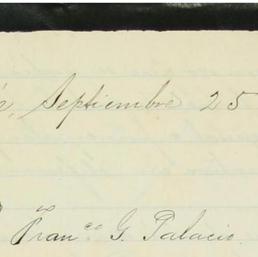 Septiembre 25
Fran.co G. Palacio.